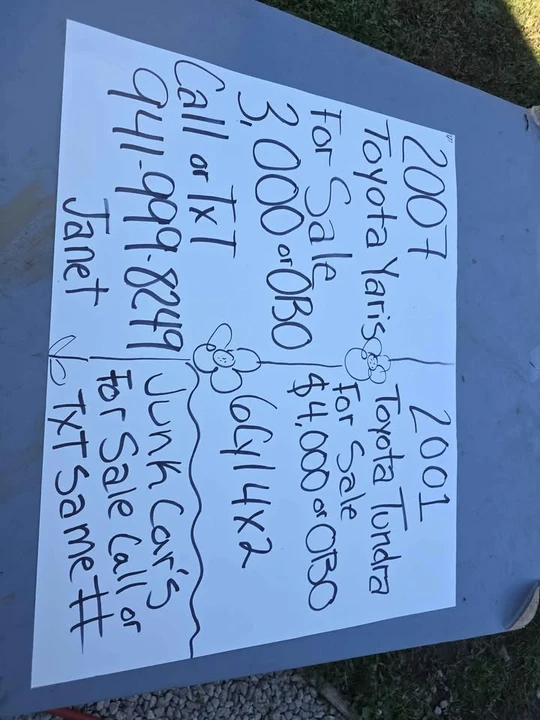 2007
Toyota Yaris
For Sale
3,000 or OBO
Call or TxT
941-999-8249
Janet
2001
Toyota Tundra
For Sale
$4,000 or OBO
6Cyl 4x2
Junk Car's
For Sale Call or
TxT Same #